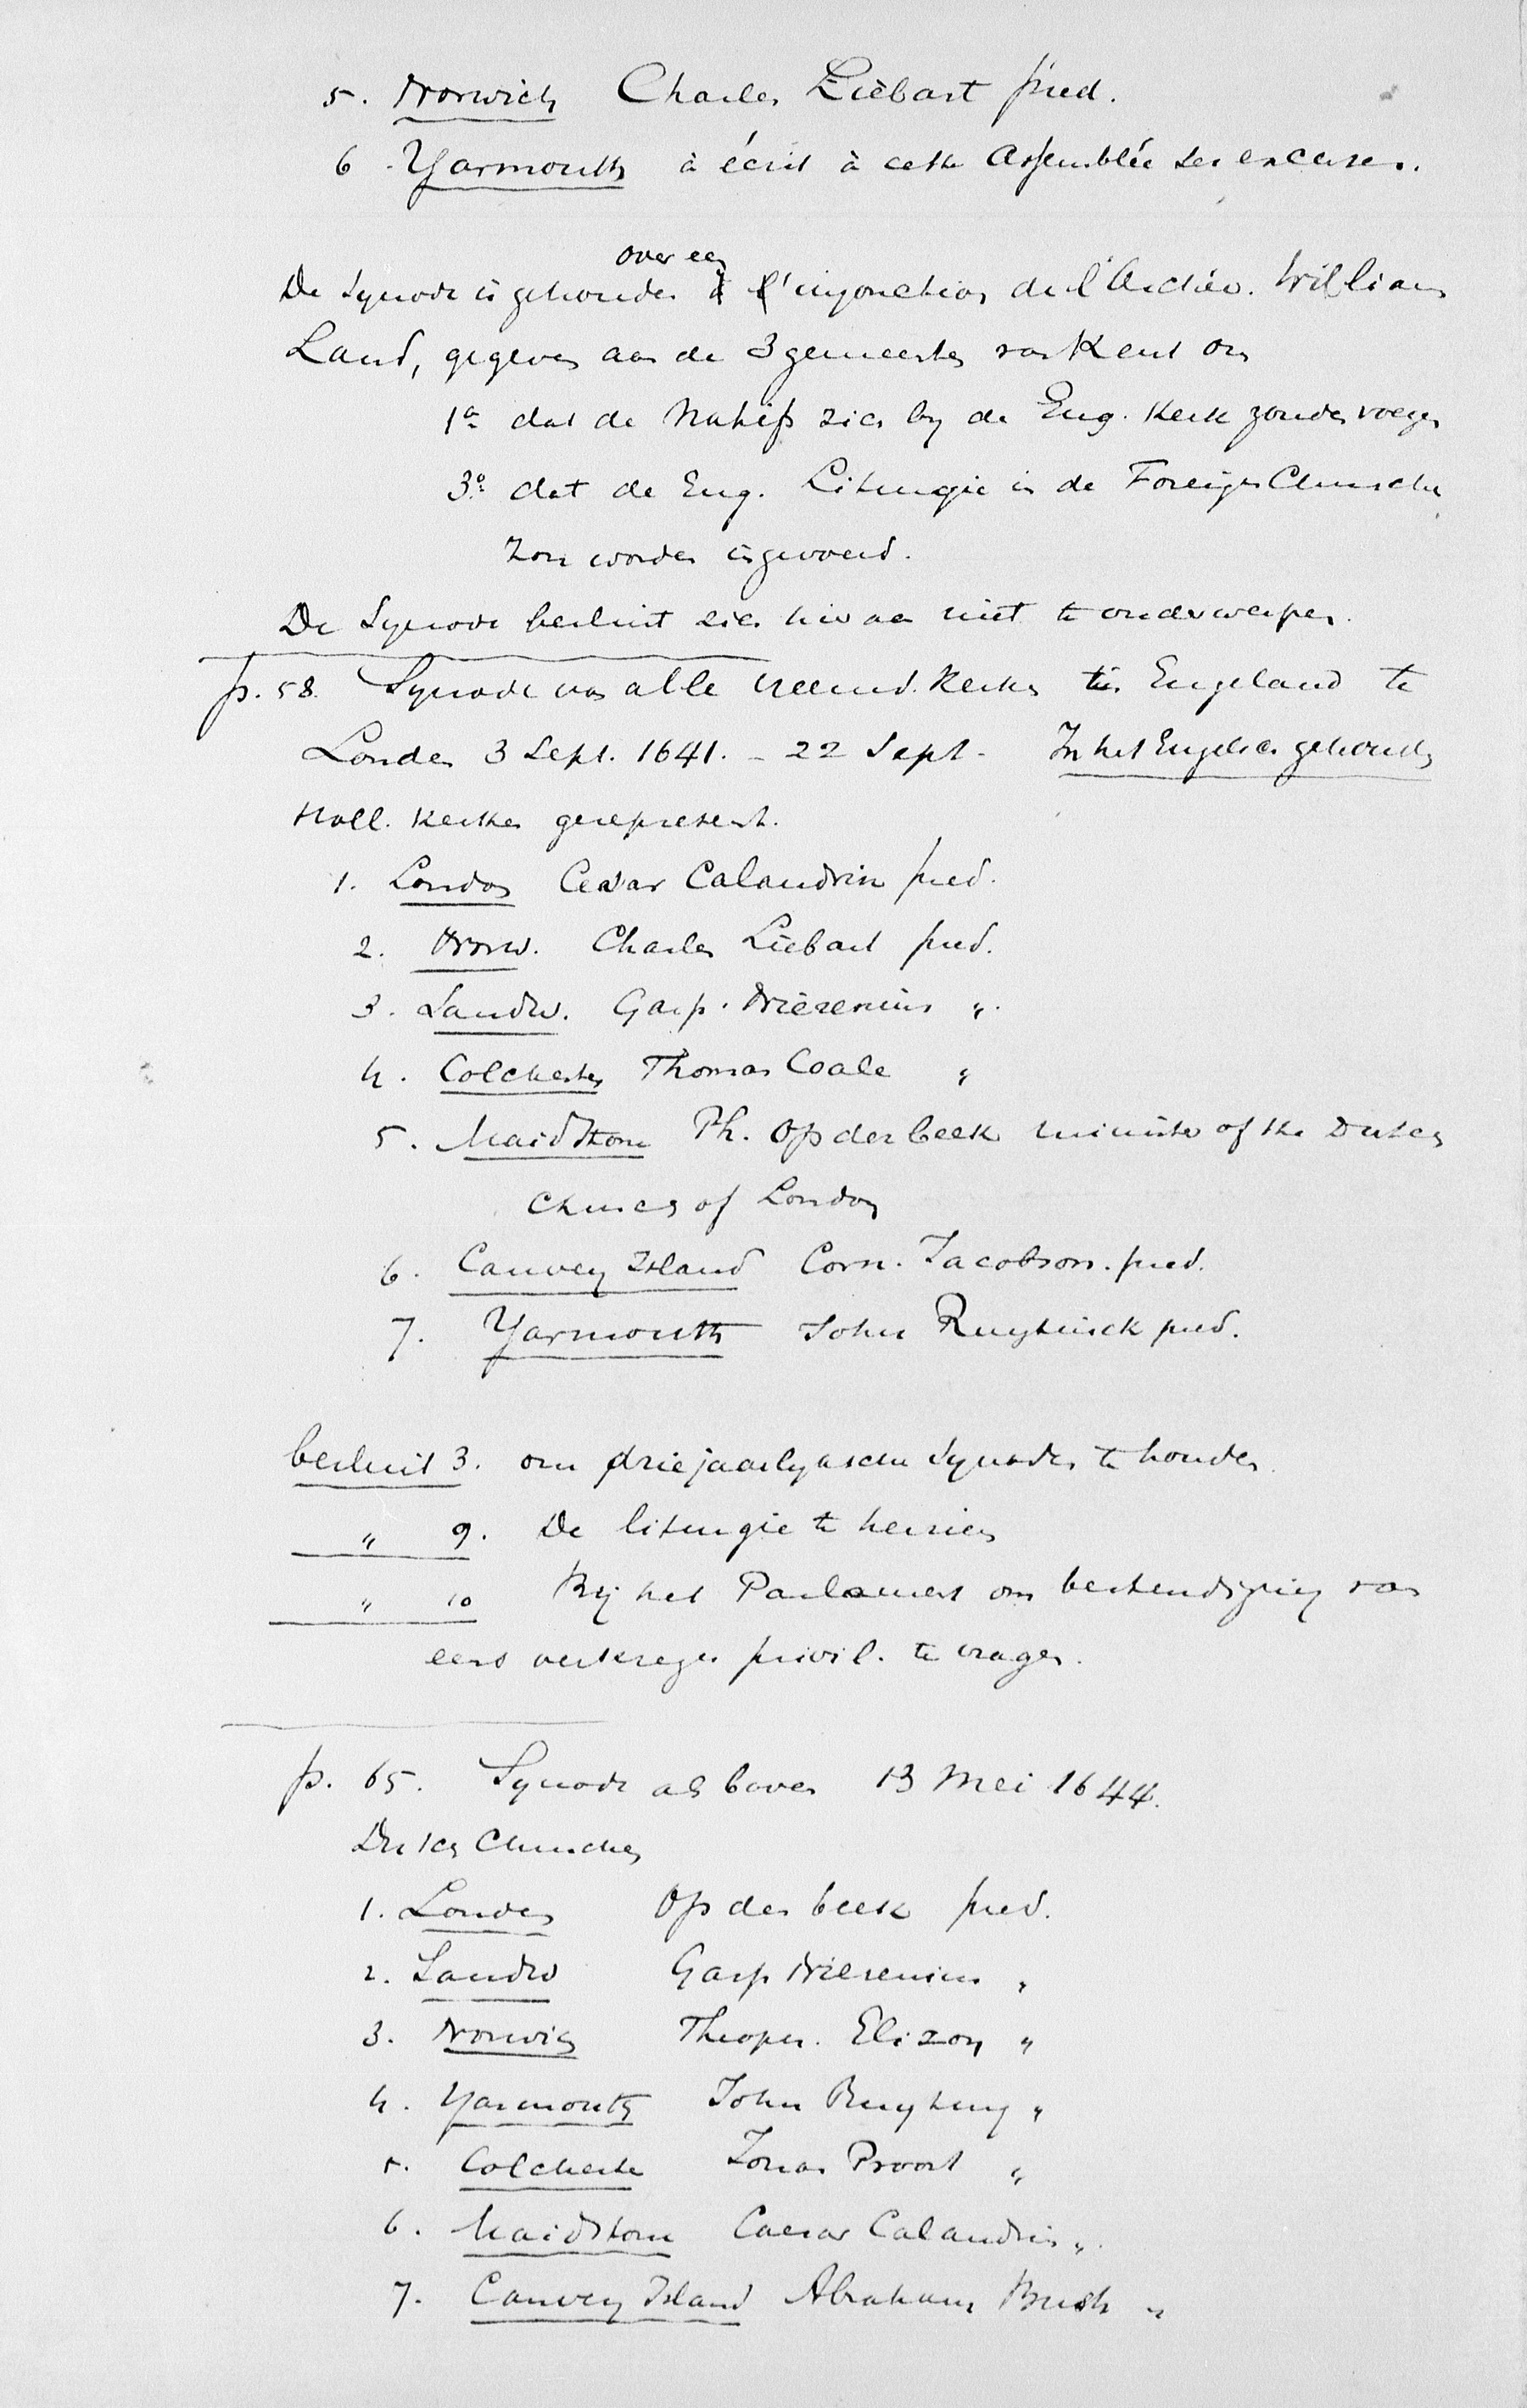 5. Norwich Charles Liëbart pred.
6. Yarmouth à écrit à cette Assemblée ses excuses.
over een
De Synode is gehouden l'injonction de l'Archiev. William
Laud, gegeven aan de 3 gemeenten van Kent om
1º dat de Natifs zich by de Eng. Kerk zouden voegen
3º dat de Eng. Liturgie in de Foreign Churches
zou worden ingevoerd.
De Synode besluit zich hieraan niet te onderwerpen.
p. 58. Synode van alle vreemd. Kerken in Engeland te
Londen 3 Sept. 1641. - 22 Sept. In het Engelsch gehouden
Holl. Kerken gerepresent.
1. London Cesar Calandrin pred.
2. Norw. Charles Liëbart pred.
3. Sandw. Gasp. Niërenius "
4. Colchester Thomas Coale "
5. Maidstone Ph. Op der beek minister of the Dutch
Church of London
6. Canvey Island Corn. Jacobson. pred.
7. Yarmouth John Ruytinck pred.
besluit 3. om driejaarlyksche Synoden te houden.
" 9. De liturgie te herzien
" 10 Bij het Parlament om bestendiging van
eens verkregen privil. te vragen.
p. 65. Synode als boven 13 Mei 1644.
Dutch Churches
1. Londen Op der beek pred.
2. Sandw Gasp Nierenius "
3. Norwich Theoph. Elison "
4. Yarmouth John Ruyting "
5. Colcheste Jonas Proost "
6. Maidstone Caesar Calandrin "
7. Canvey Island Abraham Bush "